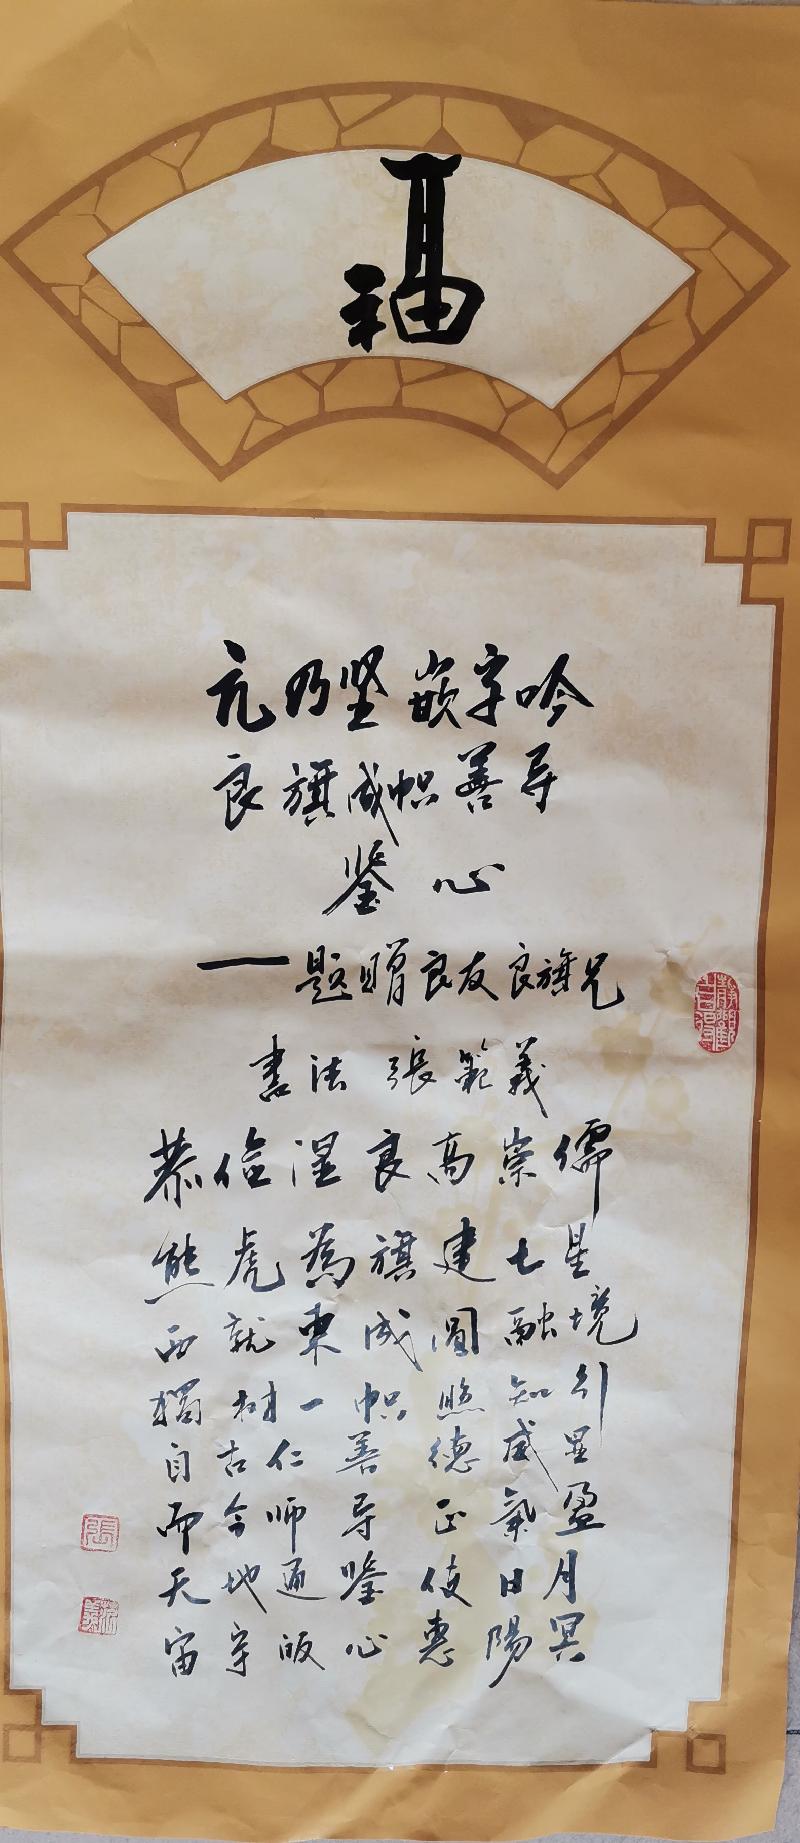 福
亢乃坚嵌字吟
良旗成帜善导
鉴心
——题赠良友良旗兄
書法 張範義
恭俭温良高崇儒
熊虎為旗建七星
西就東成圓融境
獨树一帜照知引
自古仁善德威显
而今师导正氣盈
天地通鉴伎日月
宙宇皈心惠陽冥
張